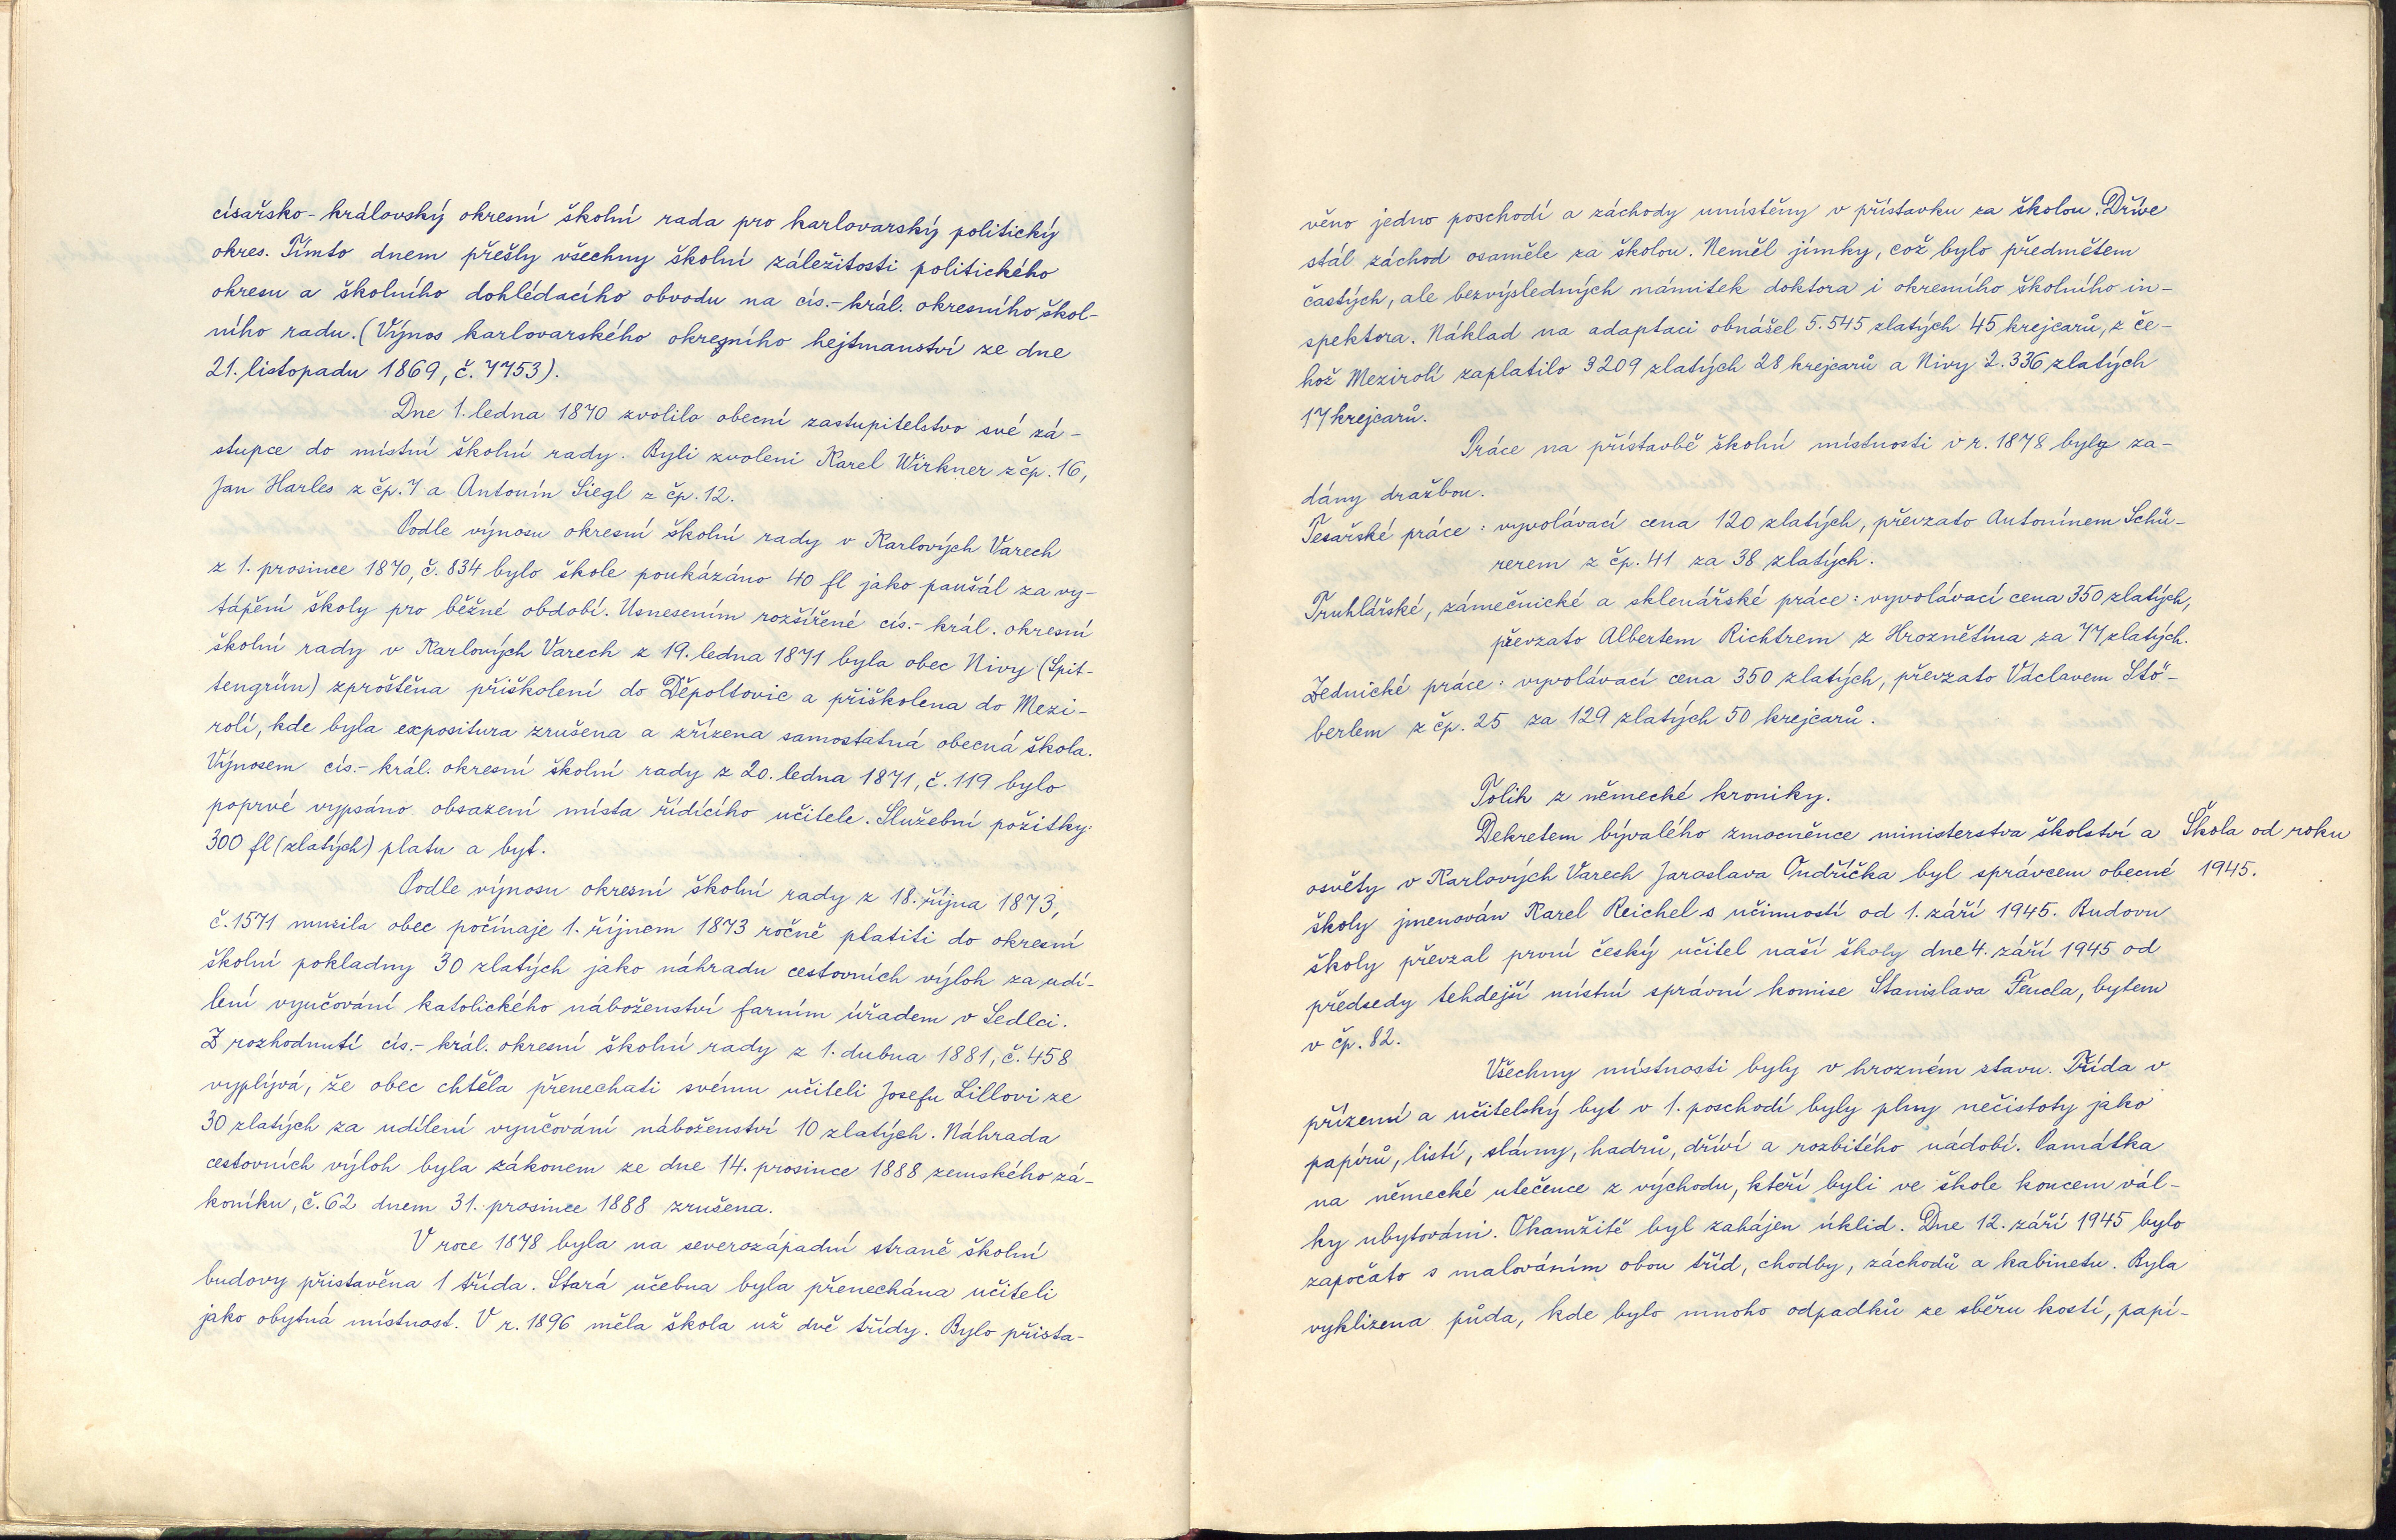 císařsko-královský okresní školní rada pro karlovarský politický
okres. Tímto dnem přešly všechny školní záležitosti politického
okresu a školního dohlédacího obvodu na cís.-král. okresního škol-
ního radu. (Výnos karlovarského okresního hejtmanství ze dne
21. listopadu 1869, č. 7753).
Dne 1. ledna 1870 zvolilo obecní zastupitelstvo své zá-
stupce do místní školní rady. Byli zvoleni Karel Wirkner z čp. 16,
Jan Harles z čp. 7 a Antonín Siegl z čp. 12.
Podle výnosu okresní školní rady v Karlových Varech
z 1. prosince 1870, č. 834 bylo škole poukázáno 40 fl jako paušál za vy-
tápění školy pro běžné období. Usnesením rozšířené cís.-král. okresní
školní rady v Karlových Varech z 19. ledna 1871 byla obec Nivy (Spit-
tengrün) zproštěna přiškolení do Děpoltovic a přiškolena do Mezi-
rolí, kde byla expositura zrušena a zřízena samostatná obecná škola.
Výnosem cís.-král. okresní školní rady z 20. ledna 1871, č. 119 bylo
poprvé vypsáno obsazení místa řídícího učitele. Služební požitky:
300 fl (zlatých) platu a byt.
Podle výnosu okresní školní rady z 18. října 1873,
č. 1571 musila obec počínaje 1. říjnem 1873 ročně platiti do okresní
školní pokladny 30 zlatých jako náhradu cestovních výloh za udí-
lení vyučování katolického náboženství farním úřadem v Sedlci.
Z rozhodnutí cís.-král. okresní školní rady z 1. dubna 1881, č. 458
vyplývá, že obec chtěla přenechati svému učiteli Josefu Lillovi ze
30 zlatých za udílení vyučování náboženství 10 zlatých. Náhrada
cestovních výloh byla zákonem ze dne 14. prosince 1888 zemského zá-
koníku, č. 62 dnem 31. prosince 1888 zrušena.
V roce 1878 byla na severozápadní straně školní
budovy přistavěna 1 třída. Stará učebna byla přenechána učiteli
jako obytná místnost. V r. 1896 měla škola už dvě třídy. Bylo přista-
věno jedno poschodí a záchody umístěny v přístavku za školou. Dříve
stál záchod osaměle za školou. Neměl jímky, což bylo předmětem
častých, ale bezvýsledných námitek doktora i okresního školního in-
spektora. Náklad na adaptaci obnášel 5.545 zlatých 45 krejcarů, z če-
hož Mezirolí zaplatilo 3209 zlatých 28 krejcarů a Nivy 2.336 zlatých
17 krejcarů.
Práce na přístavbě školní místnosti v r. 1878 byly za-
dány dražbou.
Tesařské práce: vyvolávací cena 120 zlatých, převzato Antonínem Schü-
rerem z čp. 41 za 38 zlatých.
Truhlářské, zámečnické a sklenářské práce: vyvolávací cena 350 zlatých,
převzato Albertem Richtrem z Hroznětína za 77 zlatých.
Zednické práce: vyvolávací cena 350 zlatých, převzato Václavem Stö-
berlem z čp. 25 za 129 zlatých 50 krejcarů.
Tolik z německé kroniky.
Dekretem bývalého zmocněnce ministerstva školství a Škola od roku
osvěty v Karlových Varech Jaroslava Ondříčka byl správcem obecné 1945.
školy jmenován Karel Reichel s účinností od 1. září 1945. Budovu
školy převzal první český učitel naší školy dne 4. září 1945 od
předsedy tehdejší místní správní komise Stanislava Fencla, bytem
v čp. 82.
Všechny místnosti byly v hrozném stavu. Třída v
přízemí a učitelský byt v 1. poschodí byly plny nečistoty jako
papírů, listí, slámy, hadrů, dříví a rozbitého nádobí. Památka
na německé utečence z východu, kteří byli ve škole koncem vál-
ky ubytováni. Okamžitě byl zahájen úklid. Dne 12. září 1945 bylo
započato s malováním obou tříd, chodby, záchodů a kabinetu. Byla
vyklizena půda, kde bylo mnoho odpadků ze sběru kostí, papí-